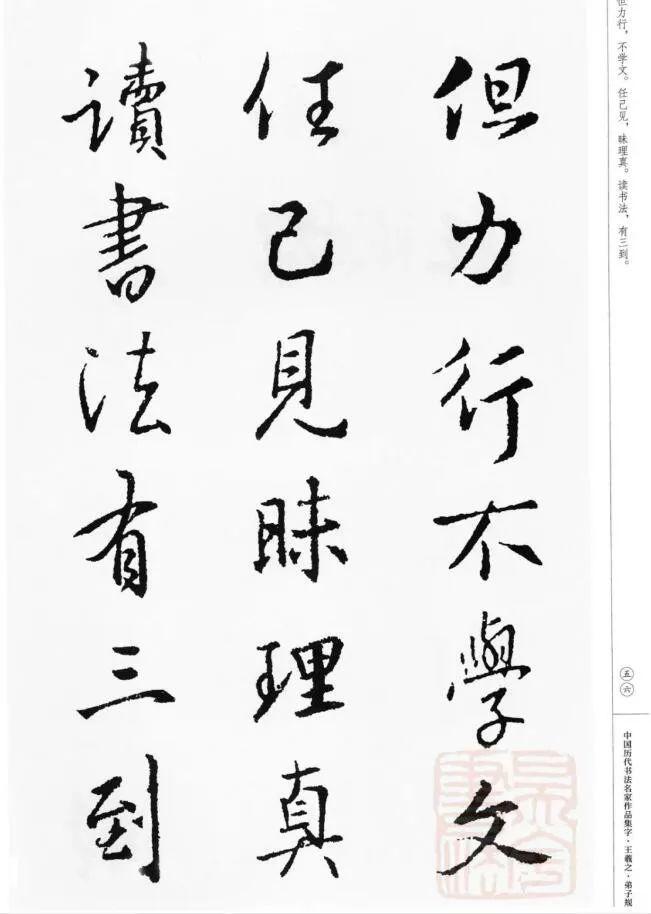 但力行不學文
任己見昧理真
讀書法有三到
但力行，不学文。任己见，昧理真。读书法，有三到。
五六
中国历代书法名家作品集字·王羲之·弟子规